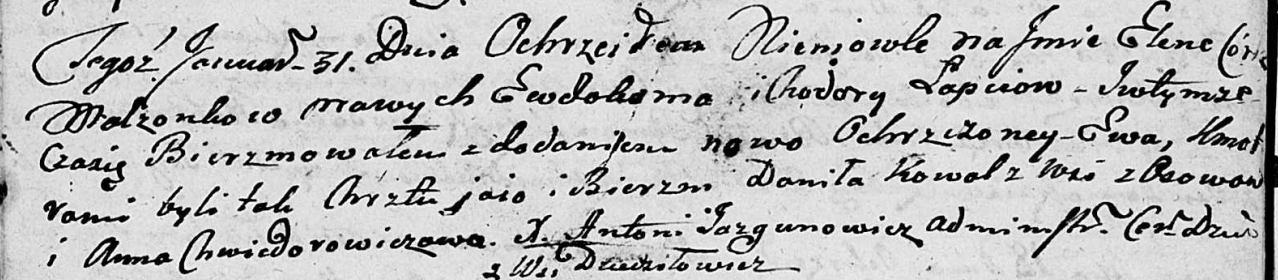 Tegoż Januar. 31. Dnia Ochrzciłem Niemowle na Imie Elene Córke
Małżonkow prawych Ewdokima i Chodory Łapciow - Iwtymże
Czasię Bierzmowałem z dodaniem nowo Ochrzczoney - Ewa, Kmot
rami byli tak Chrztu jako i Bierzm Daniła Kowal z Wsi
i Anna Chwiedorowiczowa. X. Antoni Jazgunowicz administr. Cer.
z Wsi Dziedziłowicz